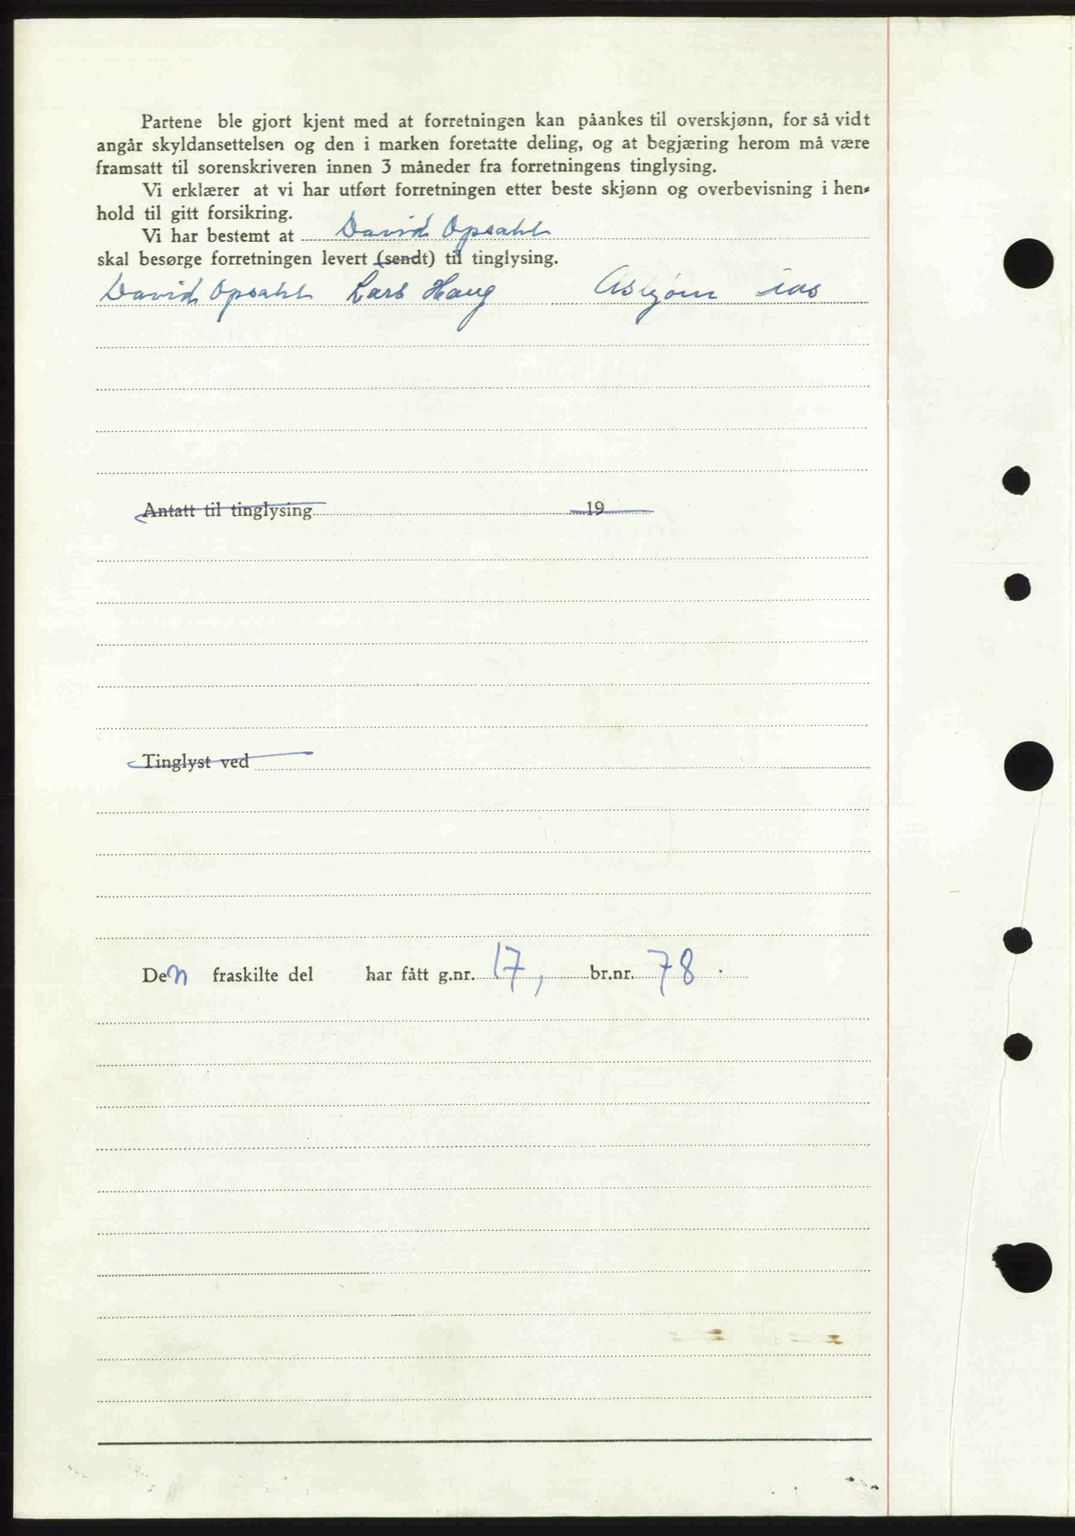 Partene ble gjort kjent med at forretningen kan påankes til overskjønn, for så vidt
angår skyldansettelsen og den i marken foretatte deling, og at begjæring herom må være
framsatt til sorenskriveren innen 3 måneder fra forretningens tinglysing.
Vi erklærer at vi har utført forretningen etter beste skjønn og overbevisning i hen-
hold til gitt forsikring.
Vi har bestemt at David Opsahl
skal besørge forretningen levert (sendt) til tinglysing.
David Opsahl Lars Haug Asbjørn
Antatt til tinglysing 19
Tinglyst ved
Den fraskilte del har fått g.nr. 17, br.nr. 78.